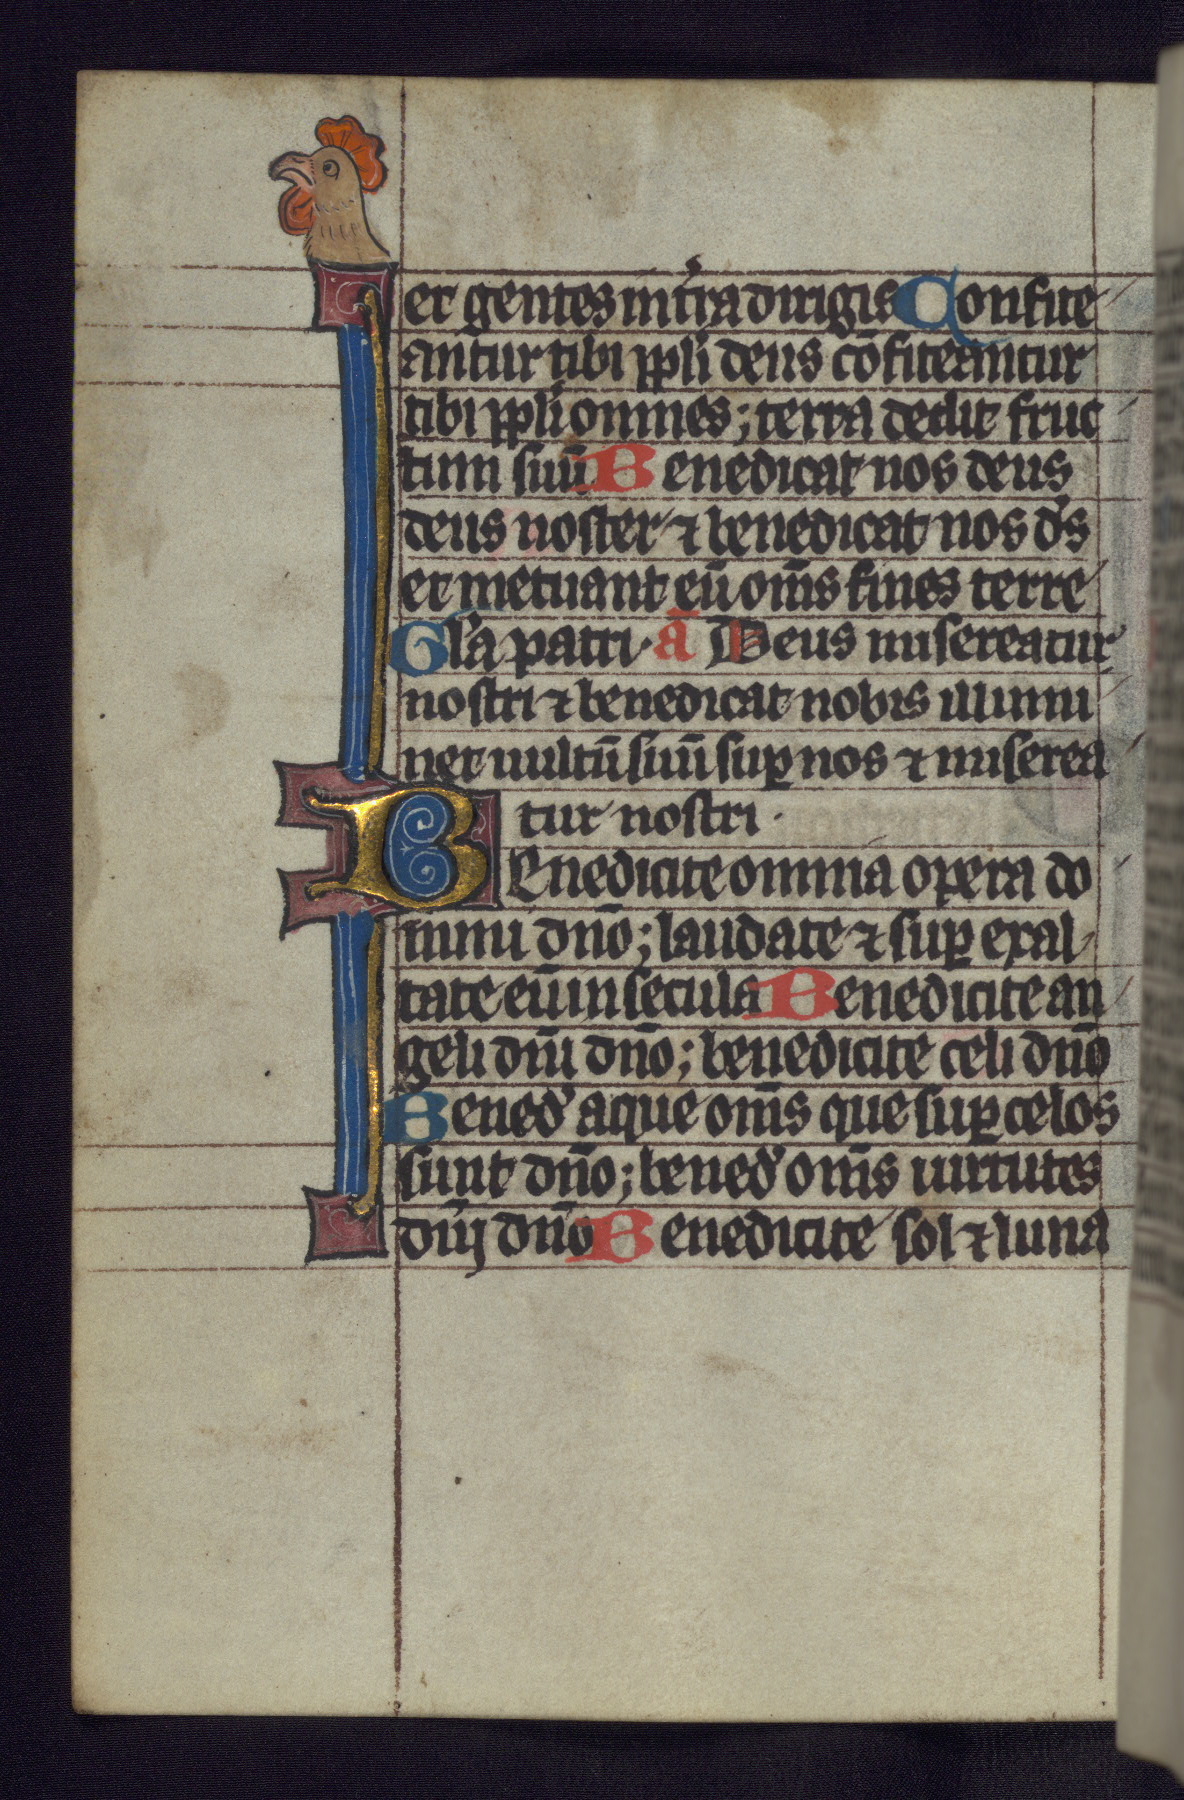 et gentes in tr̄a dirigis Confite
antur tibi ppl̄i deus cōfiteantur
tibi ppl̄i omnes; terra dedit fruc
tum suū Benedicat nos deus
deus noster ⁊ benedicat nos ds̄
et metuant eū om̄s fines terre
Gl̄a patri. ā Deus misereatur
nostri ⁊ benedicat nobis illumi
net uultū suū suꝑ nos ⁊ miserea
tur nostri.
BEnedicite omnia opera do
mini dn̄o; laudate ⁊ suꝑ exal
tate eū in secula Benedicite an
geli dn̄i dn̄o; benedicite celi dn̄o
Bened̄ aque om̄s que suꝑ celos
sunt dn̄o; bened̄ om̄s uirtutes
dn̄i dn̄o Benedicite sol ⁊ luna